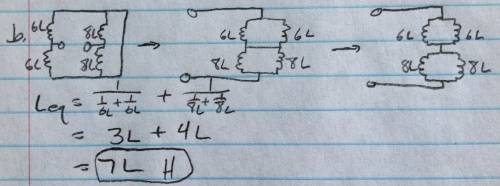 b. 6L 8L 6L 8L → 6L 6L 8L 8L → 6L 6L 8L 8L
Leq = 1/(1/6L + 1/6L) + 1/(1/8L + 1/8L)
= 3L + 4L
= 7L H